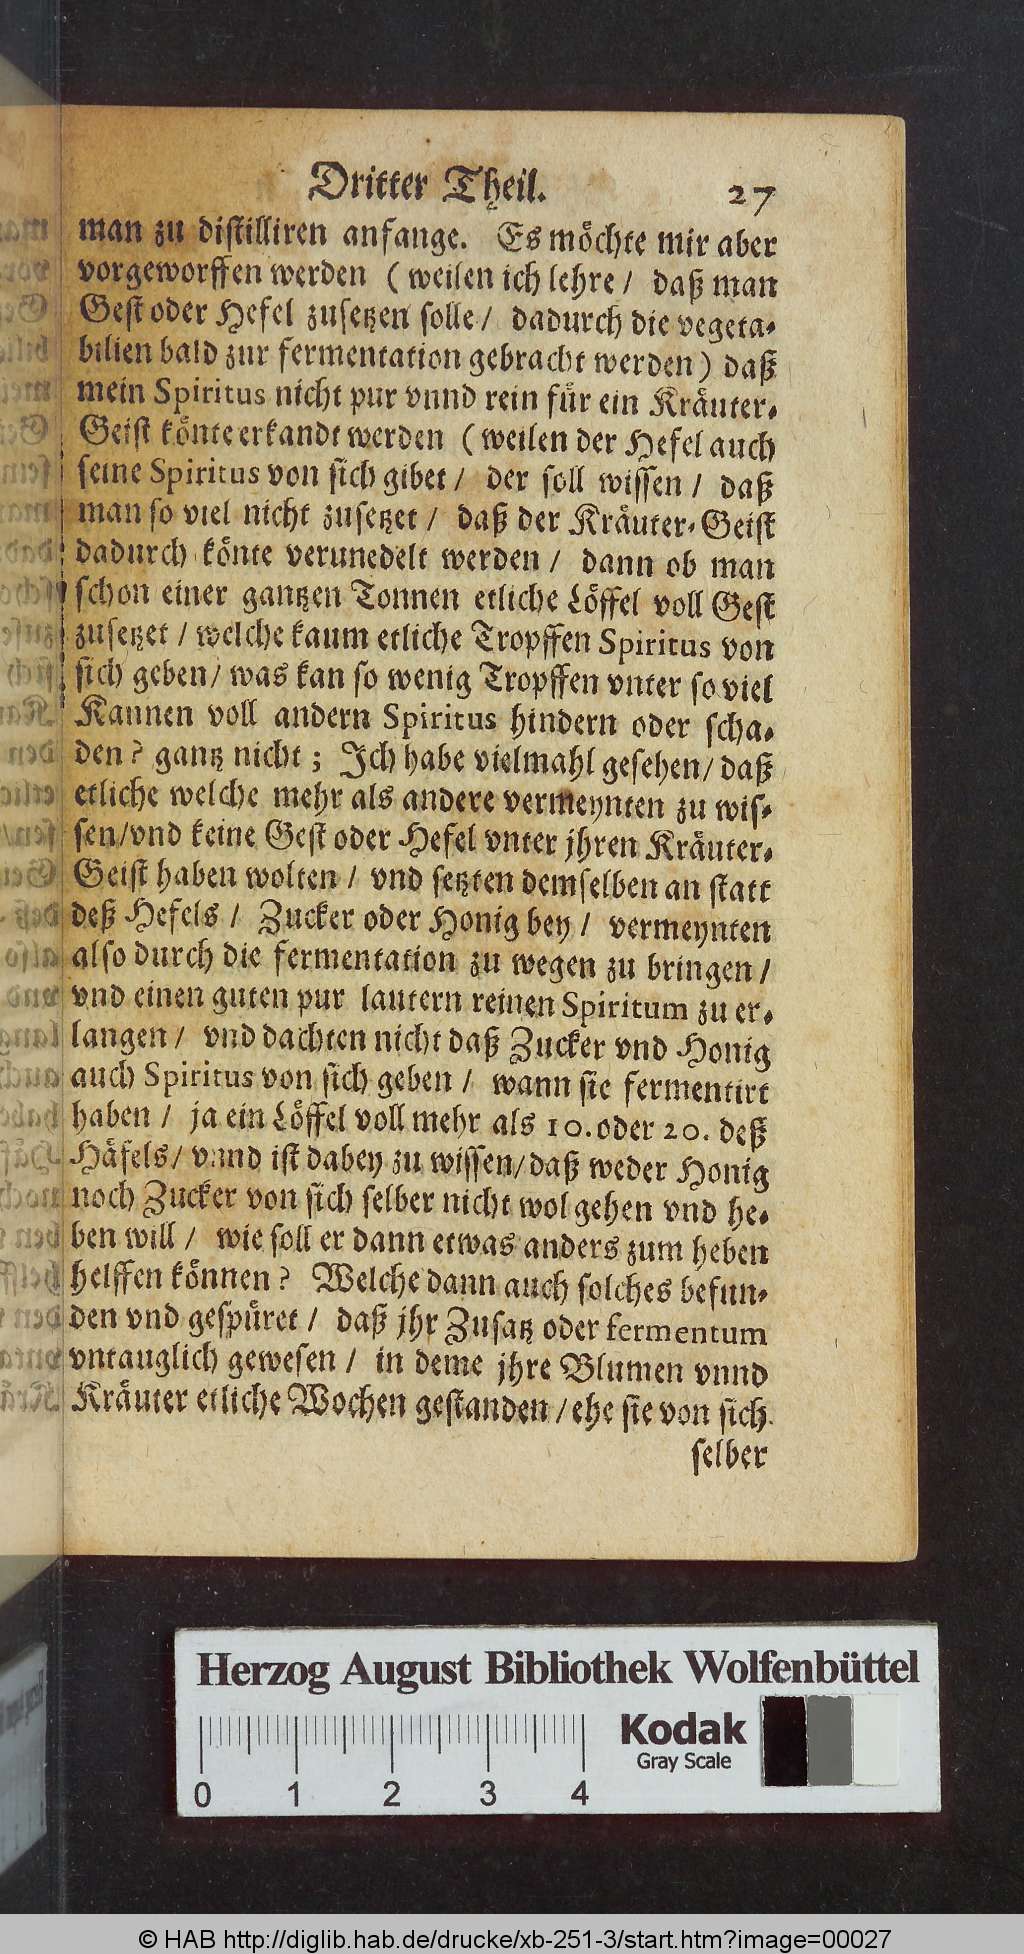 Dritter Theil. 27
man zu distilliren anfange. Es möchte mir aber
vorgeworffen werden ( weilen ich lehre / daß man
Gest oder Hefel zusetzen solle / dadurch die vegeta-
bilien bald zur fermentation gebracht werden ) daß
mein Spiritus nicht pur vnnd rein für ein Kräuter-
Geist könte erkandt werden ( weilen der Hefel auch
seine Spiritus von sich gibet / der soll wissen / daß
man so viel nicht zusetzet / daß der Kräuter-Geist
dadurch könte verunedelt werden / dann ob man
schon einer gantzen Tonnen etliche Löffel voll Gest
zusetzet / welche kaum etliche Tropffen Spiritus von
sich geben / was kan so wenig Tropffen vnter so viel
Kannen voll andern Spiritus hindern oder scha-
den ? gantz nicht ; Ich habe vielmahl gesehen / daß
etliche welche mehr als andere vermeynten zu wis-
sen / vnd keine Gest oder Hefel vnter jhren Kräuter-
Geist haben wolten / vnd setzten demselben an statt
deß Hefels / Zucker oder Honig bey / vermeynten
also durch die fermentation zu wegen zu bringen /
vnd einen guten pur lautern reinen Spiritum zu er-
langen / vnd dachten nicht daß Zucker vnd Honig
auch Spiritus von sich geben / wann sie fermentirt
haben / ja ein Löffel voll mehr als 10. oder 20. deß
Häfels / vnnd ist dabey zu wissen / daß weder Honig
noch Zucker von sich selber nicht wol gehen vnd he-
ben will / wie soll er dann etwas anders zum heben
helffen können ? Welche dann auch solches befun-
den vnd gespüret / daß jhr Zusatz oder fermentum
vntauglich gewesen / in deme jhre Blumen vnnd
Kräuter etliche Wochen gestanden / ehe sie von sich
selber
Herzog August Bibliothek Wolfenbüttel
Kodak
Gray Scale
0 1 2 3 4
© HAB http://diglib.hab.de/drucke/xb-251-3/start.htm?image=00027